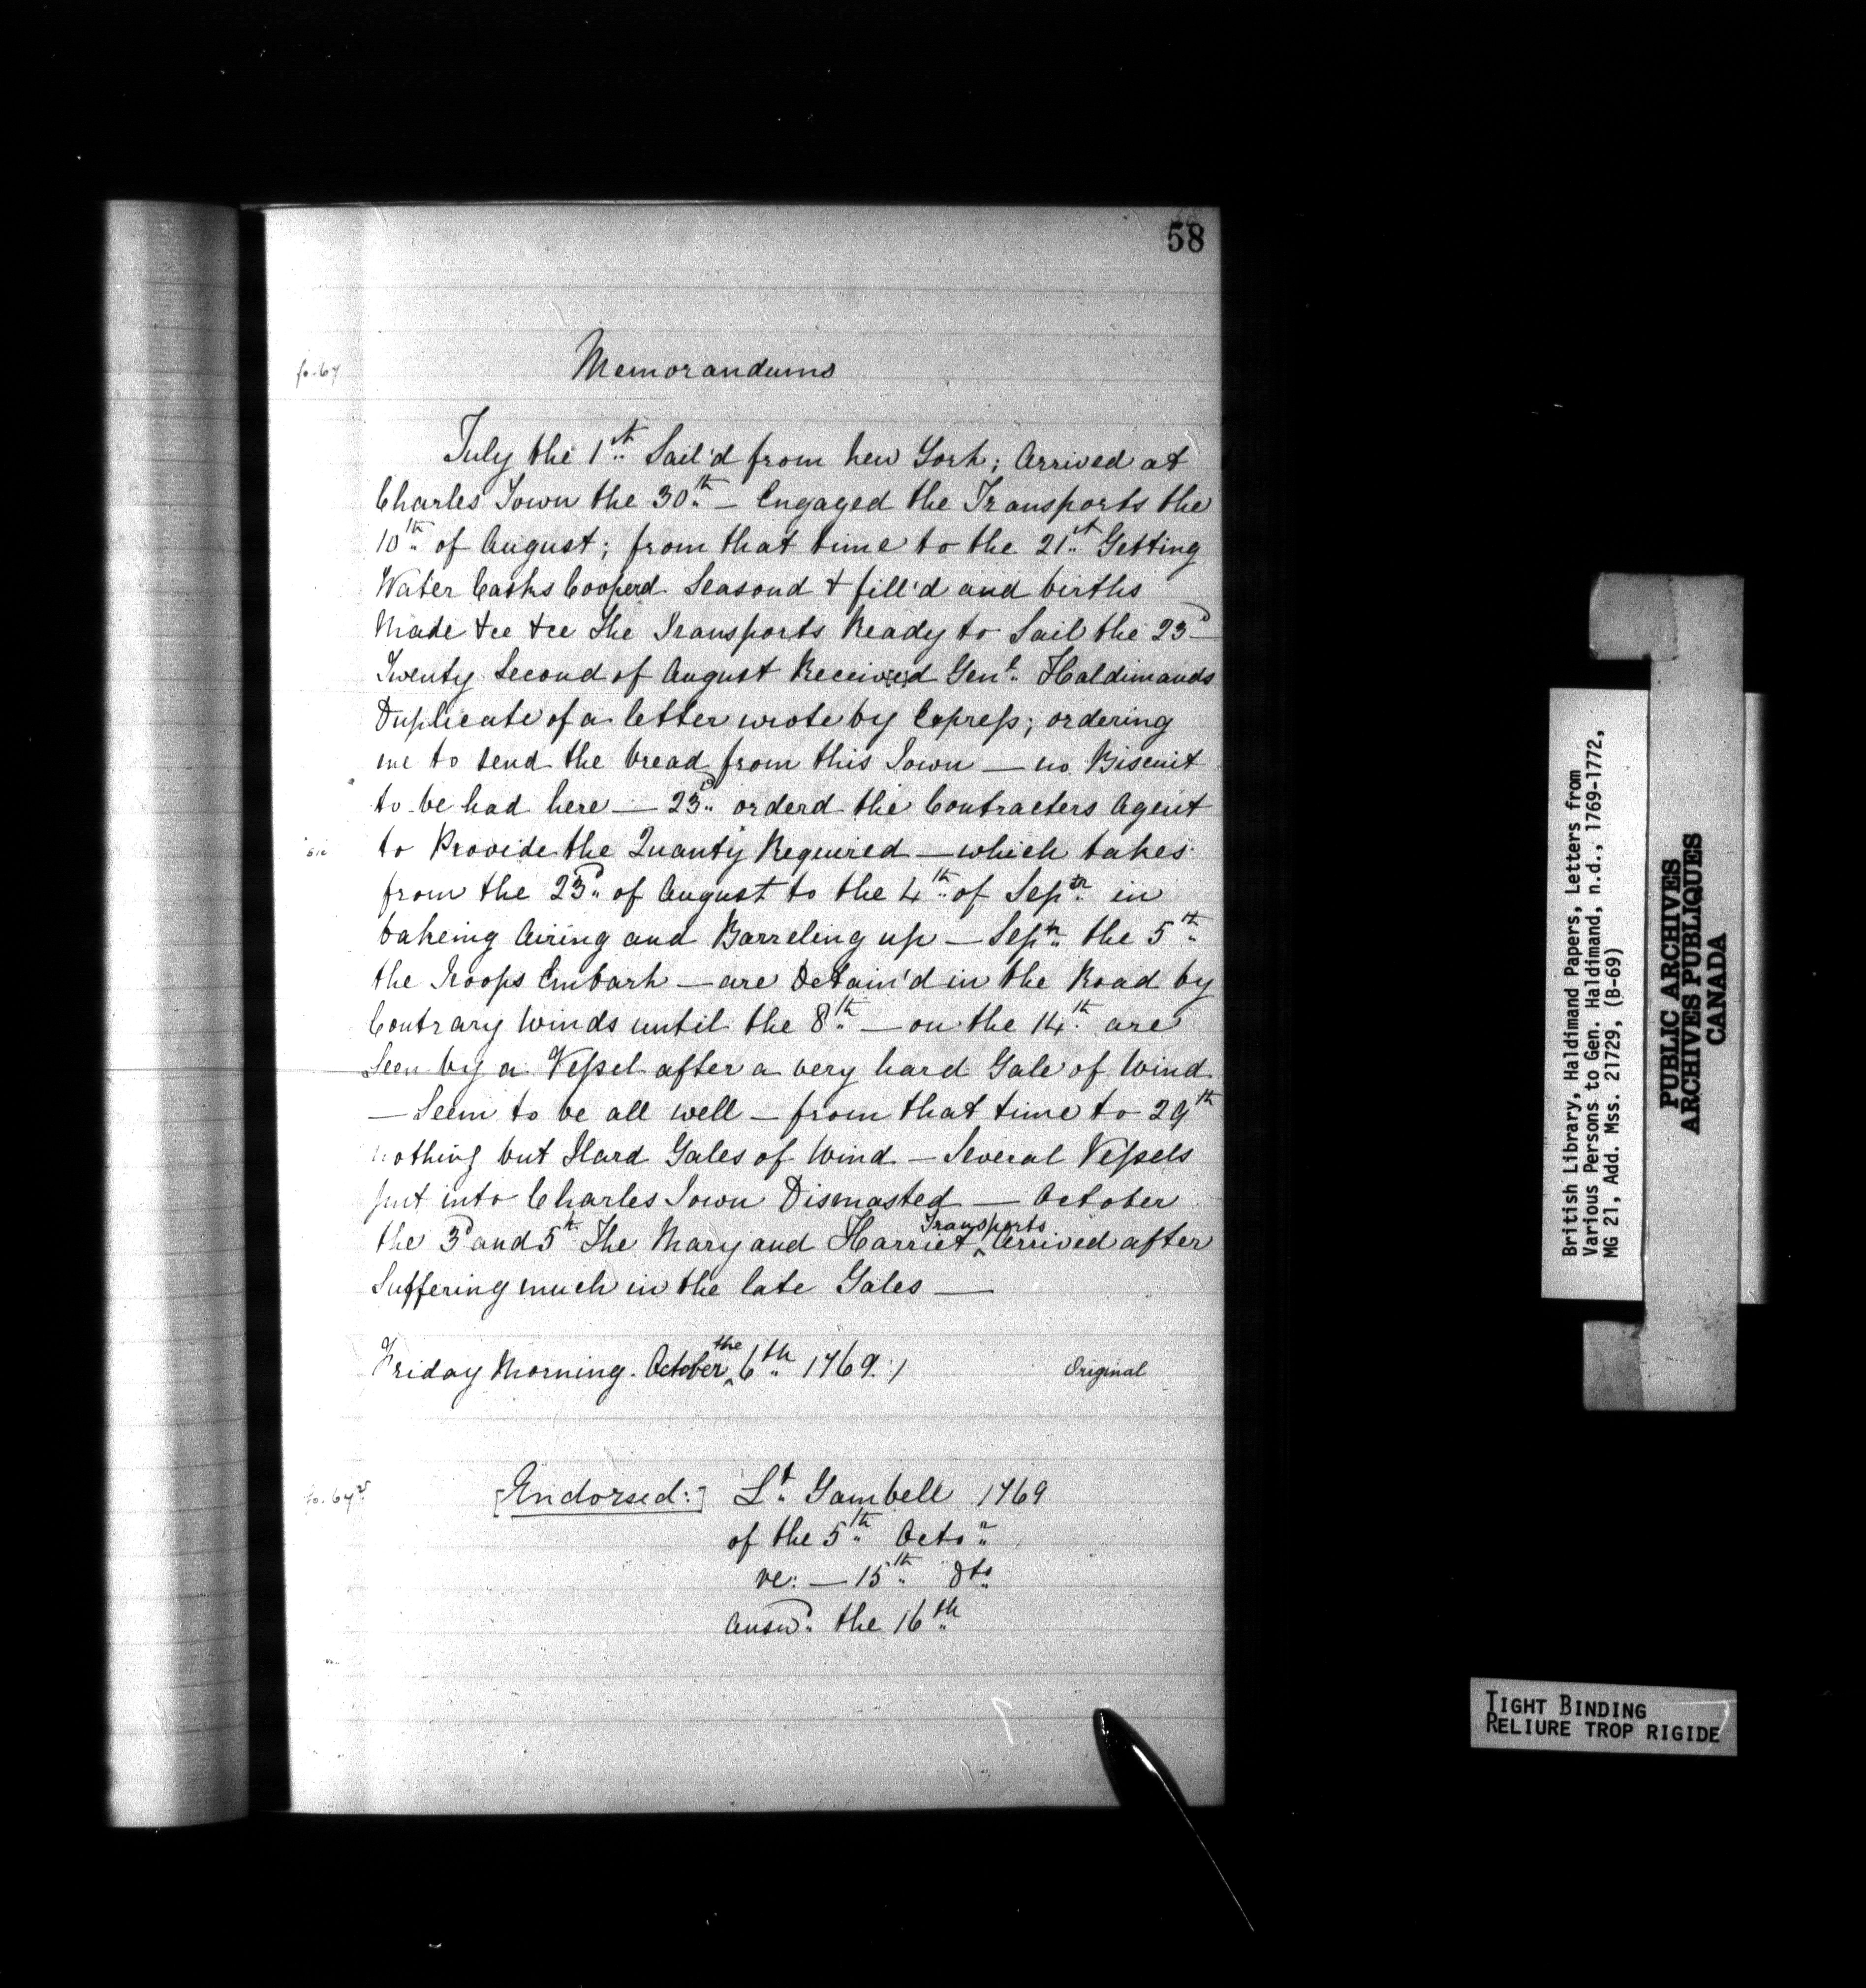 58
fo. 67
Memorandums
July the 1st Sail'd from New York; Arrived at
Charles Town the 30th — Engaged the Transports the
10th of August; from that time to the 21st Getting
Water Casks Cooperd Seasond & fill'd and births
Made &ce &ce The Transports Ready to Sail the 23d —
Twenty Second of August Received Genl. Haldimands
Duplicate of a letter wrote by Express; ordering
me to send the bread from this Town — no Biscuit
to be had here — 23d orderd the Contracters Agent
sic
to Provide the Quanty Required — which takes
from the 23d of August to the 4th of Septr. in
bakeing Airing and Barreling up — Septr. the 5th
the Troops Embark — are Detain'd in the Road by
Contrary Winds until the 8th — on the 14th are
Seen by a Vessel after a very hard Gale of Wind
— Seem to be all well — from that time to 29th
nothing but Hard Gales of Wind — Several Vessels
put into Charles Town Dismasted — October
the 3d and 5th The Mary and Harriet ^Transports Arrived after
Suffering much in the late Gales —
Friday Morning. October ^the 6th 1769:/
Original
fo. 67v
[Endorsed:] Lt. Gambell 1769
of the 5th Octor.
re: — 15th dto.
answd. the 16th
British Library, Haldimand Papers, Letters from
Various Persons to Gen. Haldimand, n.d., 1769-1772,
MG 21, Add. Mss. 21729, (B-69)
PUBLIC ARCHIVES
ARCHIVES PUBLIQUES
CANADA
TIGHT BINDING
RELIURE TROP RIGIDE